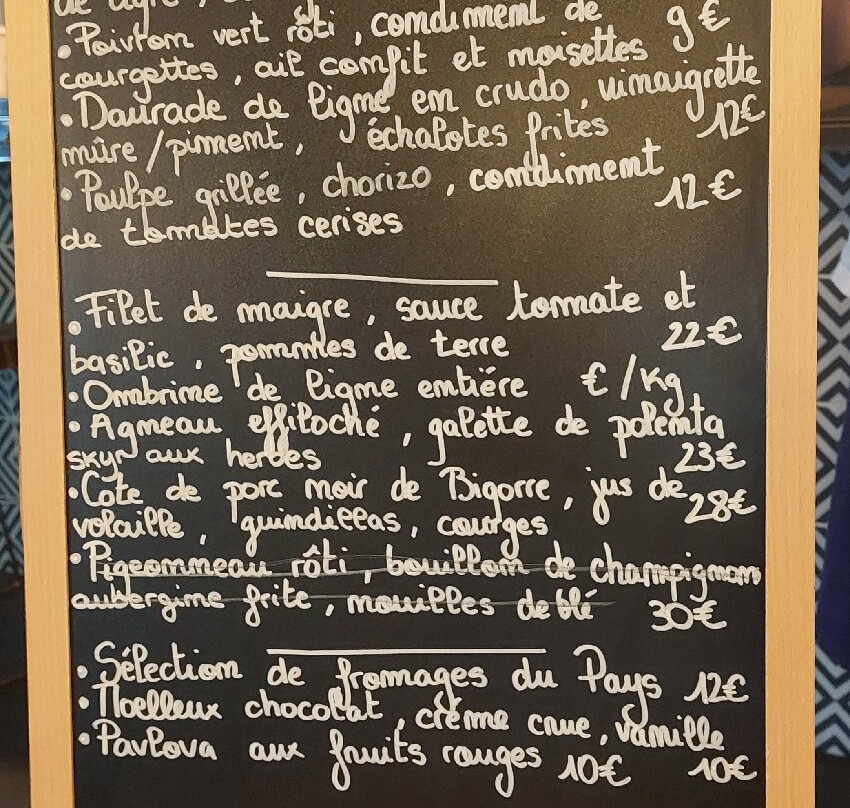 de tigre,
• Poivron vert rôti, condiment de
courgettes, ail confit et noisettes 9€
• Daurade de ligne en crudo, vinaigrette
mûre/piment, échalotes frites 12€
• Poulpe grillée, chorizo, condiment
de tomates cerises 12€
• Filet de maigre, sauce tomate et
basilic, pommes de terre 22€
• Ombrine de ligne entière €/Kg
• Agneau effiloché, galette de polenta
skyr aux herbes 23€
• Côte de porc noir de Bigorre, jus de
volaille, guindillas, courges 28€
• Pigeonneau rôti, bouillon de champignon
aubergine frite, nouilles de blé 30€
• Sélection de fromages du Pays 12€
• Moelleux chocolat, crème crue, vanille
• Pavlova aux fruits rouges 10€ 10€